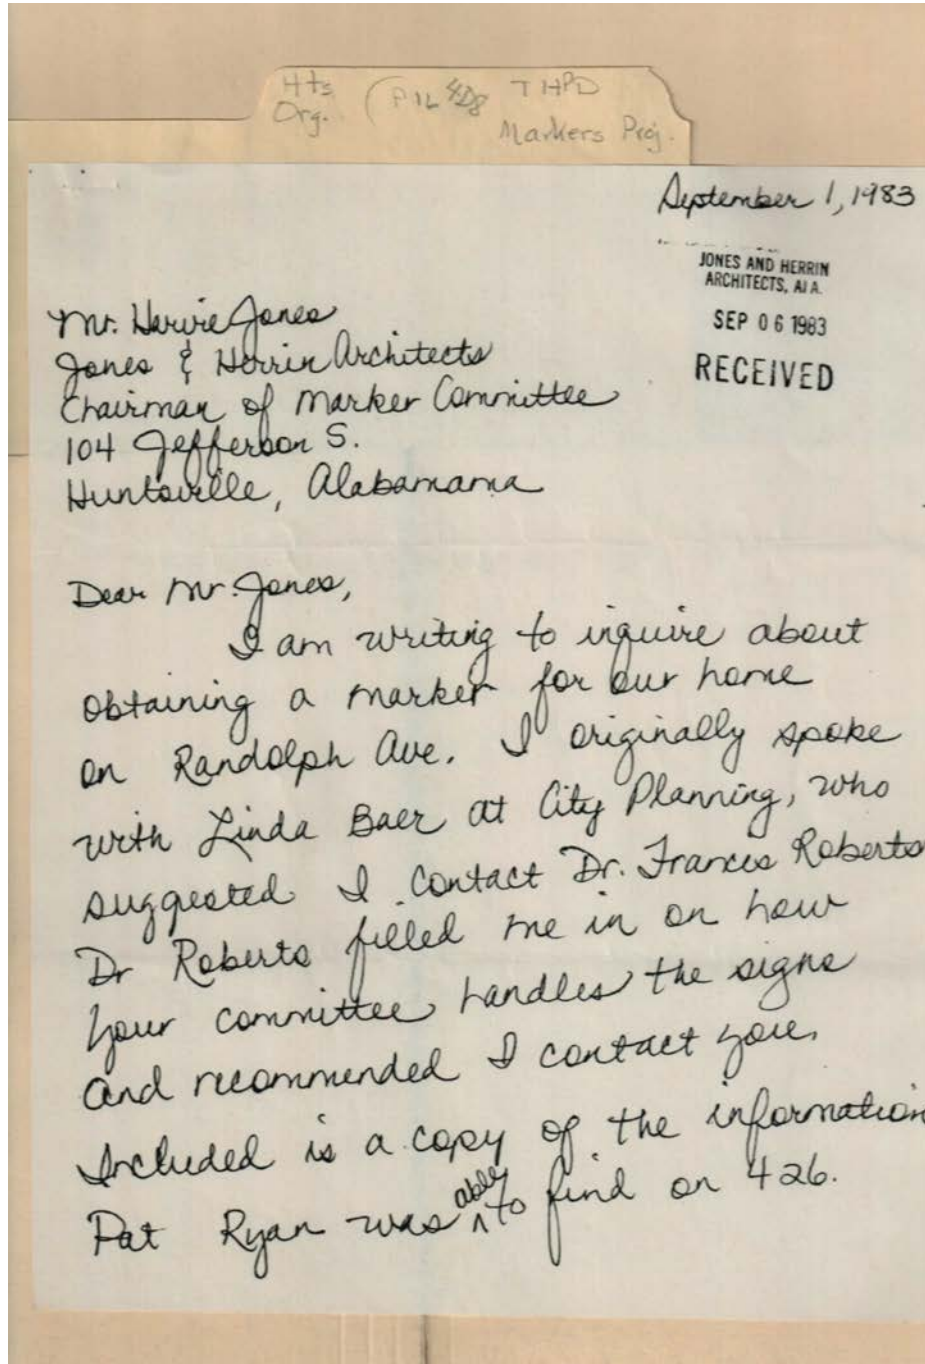 Hts. T HPD
Org. (P1L 4D8
Markers Proj.
September 1, 1983
JONES AND HERRIN
ARCHITECTS, AIA.
SEP 06 1983
RECEIVED
Mr. Harvie Jones
Jones & Herrin Architects
Chairman of Marker Committee
104 Jefferson S.
Huntsville, Alabamama
Dear Mr. Jones,
I am writing to inquire about
obtaining a marker for our home
on Randolph Ave. I originally spoke
with Linda Baer at City Planning, who
suggested I contact Dr. Frances Roberts
Dr Roberts filled me in on how
your committee handles the signs
and recommended I contact you.
Included is a copy of the information
Pat Ryan was able to find on 426.